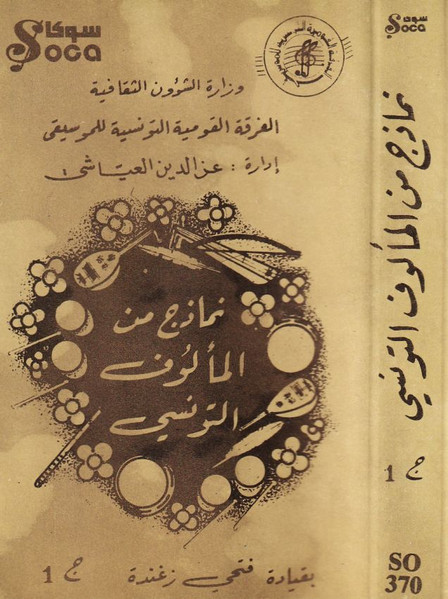 سوكا
Soca
وزارة الشؤون الثقافية
الفرقة القومية التونسية للموسيقى
إدارة : عز الدين العيّاشي
نماذج من
المألوف
التونسي
بقيادة فتحي زغندة
ج 1
سوكا
Soca
نماذج من المألوف التونسي
ج 1
SO
370